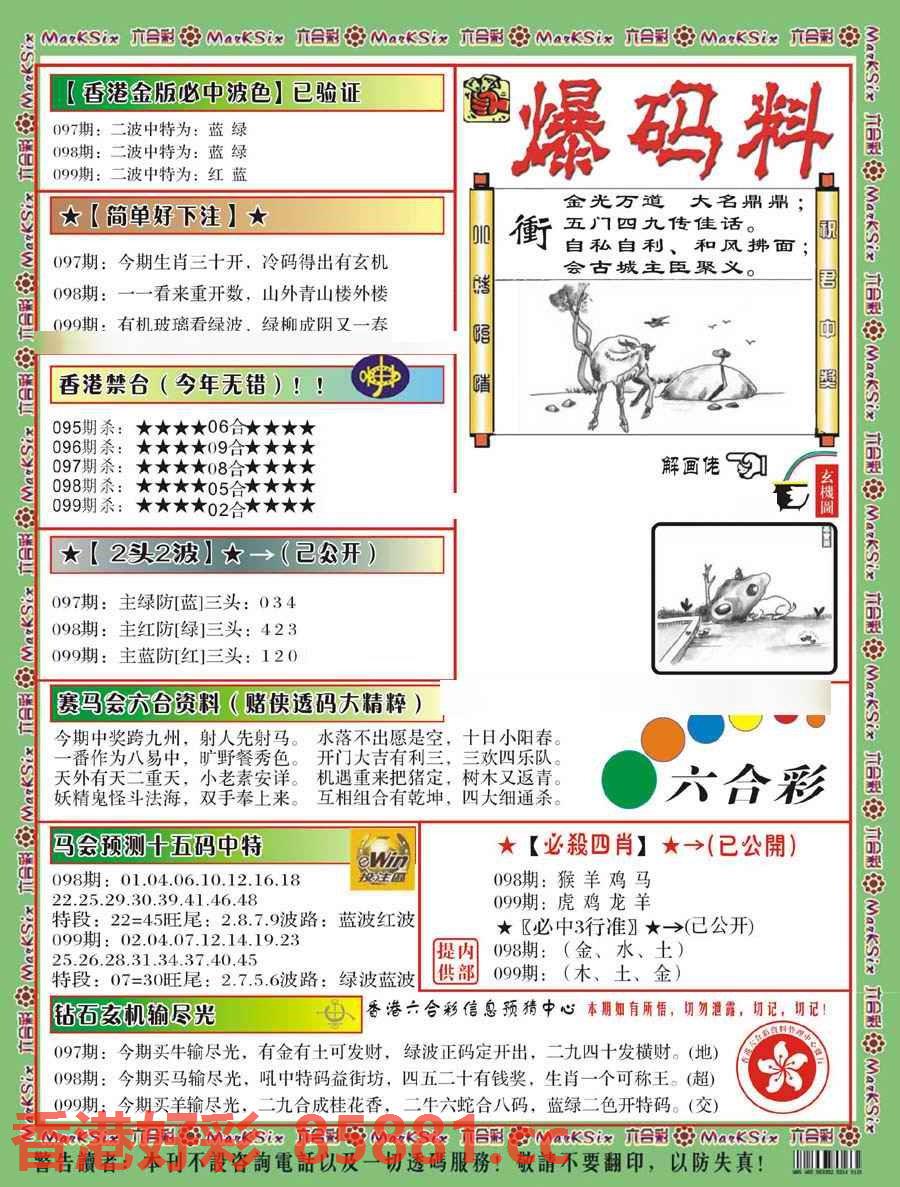 MarKSix 六合彩 MarKSix 六合彩 MarKSix 六合彩 MarKSix 六合彩 MarKSix 六合彩
【香港金版必中波色】已验证
097期：二波中特为：蓝 绿
098期：二波中特为：蓝 绿
099期：二波中特为：红 蓝
★【简单好下注】★
097期：今期生肖三十开，冷码得出有玄机
098期：一一看来重开数，山外青山楼外楼
099期：有机玻璃看绿波，绿柳成阴又一春
香港禁合（今年无错）！！
095期杀：★★★★06合★★★★
096期杀：★★★★09合★★★★
097期杀：★★★★08合★★★★
098期杀：★★★★05合★★★★
099期杀：★★★★02合★★★★
★【2头2波】★→（已公开）
097期：主绿防[蓝]三头：0 3 4
098期：主红防[绿]三头：4 2 3
099期：主蓝防[红]三头：1 2 0
爆码料
衝
金光万道 大名鼎鼎；
五门四九传佳话。
自私自利、和风拂面；
会古城主臣聚义。
祝君中奖
解画佬
玄機圖
赛马会六合资料（赌侠透码大精粹）
今期中奖跨九州，射人先射马。 水落不出愿是空，十日小阳春。
一番作为八易中，旷野餐秀色。 开门大吉有利三，三欢四乐队。
天外有天二重天，小老素安详。 机遇重来把猪定，树木又返青。
妖精鬼怪斗法海，双手奉上来。 互相组合有乾坤，四大细通杀。
六合彩
马会预测十五码中特
eWin
投注网
098期：01.04.06.10.12.16.18
22.25.29.30.39.41.46.48
特段：22=45旺尾：2.8.7.9波路：蓝波红波
099期：02.04.07.12.14.19.23
25.26.28.31.34.37.40.45
特段：07=30旺尾：2.7.5.6波路：绿波蓝波
★【必殺四肖】★→(已公開)
098期：猴 羊 鸡 马
099期：虎 鸡 龙 羊
★〖必中3行准〗★→(已公开)
098期：（金、水、土）
099期：（木、土、金）
提内
供部
钻石玄机输尽光
香港六合彩信息预猜中心
本期如有所悟，切勿泄露，切记，切记！
097期：今期买牛输尽光，有金有土可发财，绿波正码定开出，二九四十发横财。(地)
098期：今期买马输尽光，吼中特码益街坊，四五二十有钱奖，生肖一个可称王。(超)
099期：今期买羊输尽光，二九合成桂花香，二牛六蛇合八码，蓝绿二色开特码。(交)
香港好彩 85881.cc
MarKSix 六合彩 MarKSix 六合彩 MarKSix 六合彩 MarKSix 六合彩
警告讀者：本刊不設咨詢電話以及一切透碼服務！敬請不要翻印，以防失真！